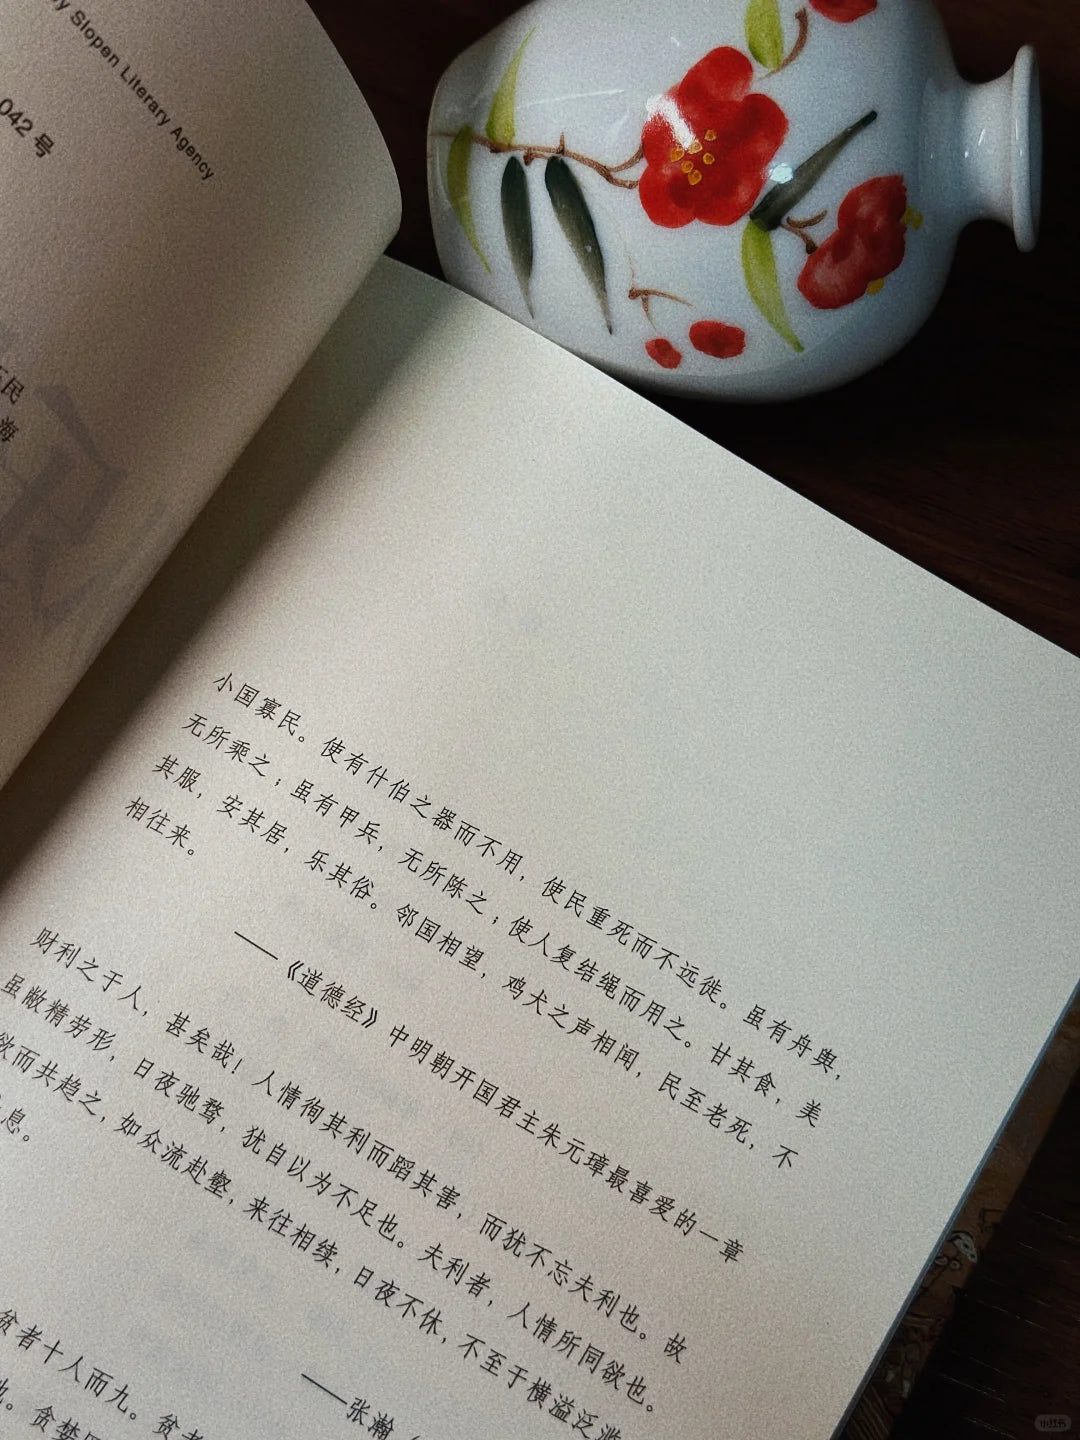 by Slopen Literary Agency
042号
民
海
小国寡民。使有什伯之器而不用，使民重死而不远徙。虽有舟舆，
无所乘之；虽有甲兵，无所陈之；使人复结绳而用之。甘其食，美
其服，安其居，乐其俗。邻国相望，鸡犬之声相闻，民至老死，不
相往来。
——《道德经》中明朝开国君主朱元璋最喜爱的一章
财利之于人，甚矣哉！人情徇其利而蹈其害，而犹不忘夫利也。故
虽敝精劳形，日夜驰骛，犹自以为不足也。夫利者，人情所同欲也。
欲而共趋之，如众流赴壑，来往相续，日夜不休，不至于横溢泛滥
息。
——张瀚
贫者十人而九。贫者
贪婪
小红书